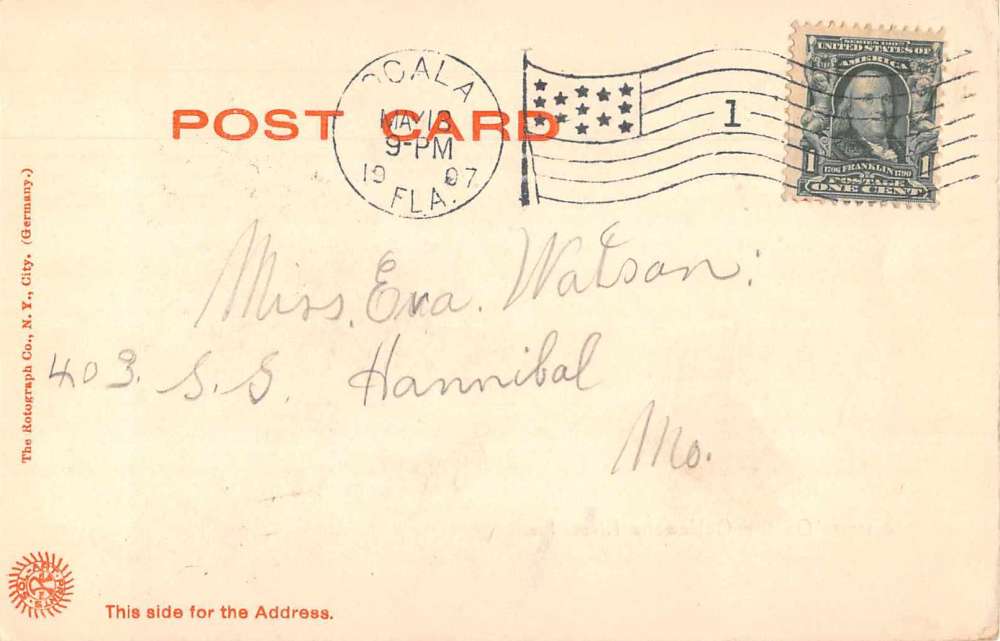 POST CARD
OCALA
MAY 18
9-PM
19 07
FLA.
1
SERIES 1902
UNITED STATES OF
AMERICA
1706 FRANKLIN 1790
POSTAGE
1 1
ONE CENT
The Rotograph Co., N. Y., City. (Germany.)
Miss. Eva. Watson:
403. S.S. Hannibal
Mo.
SOL-ART PRINTS
This side for the Address.